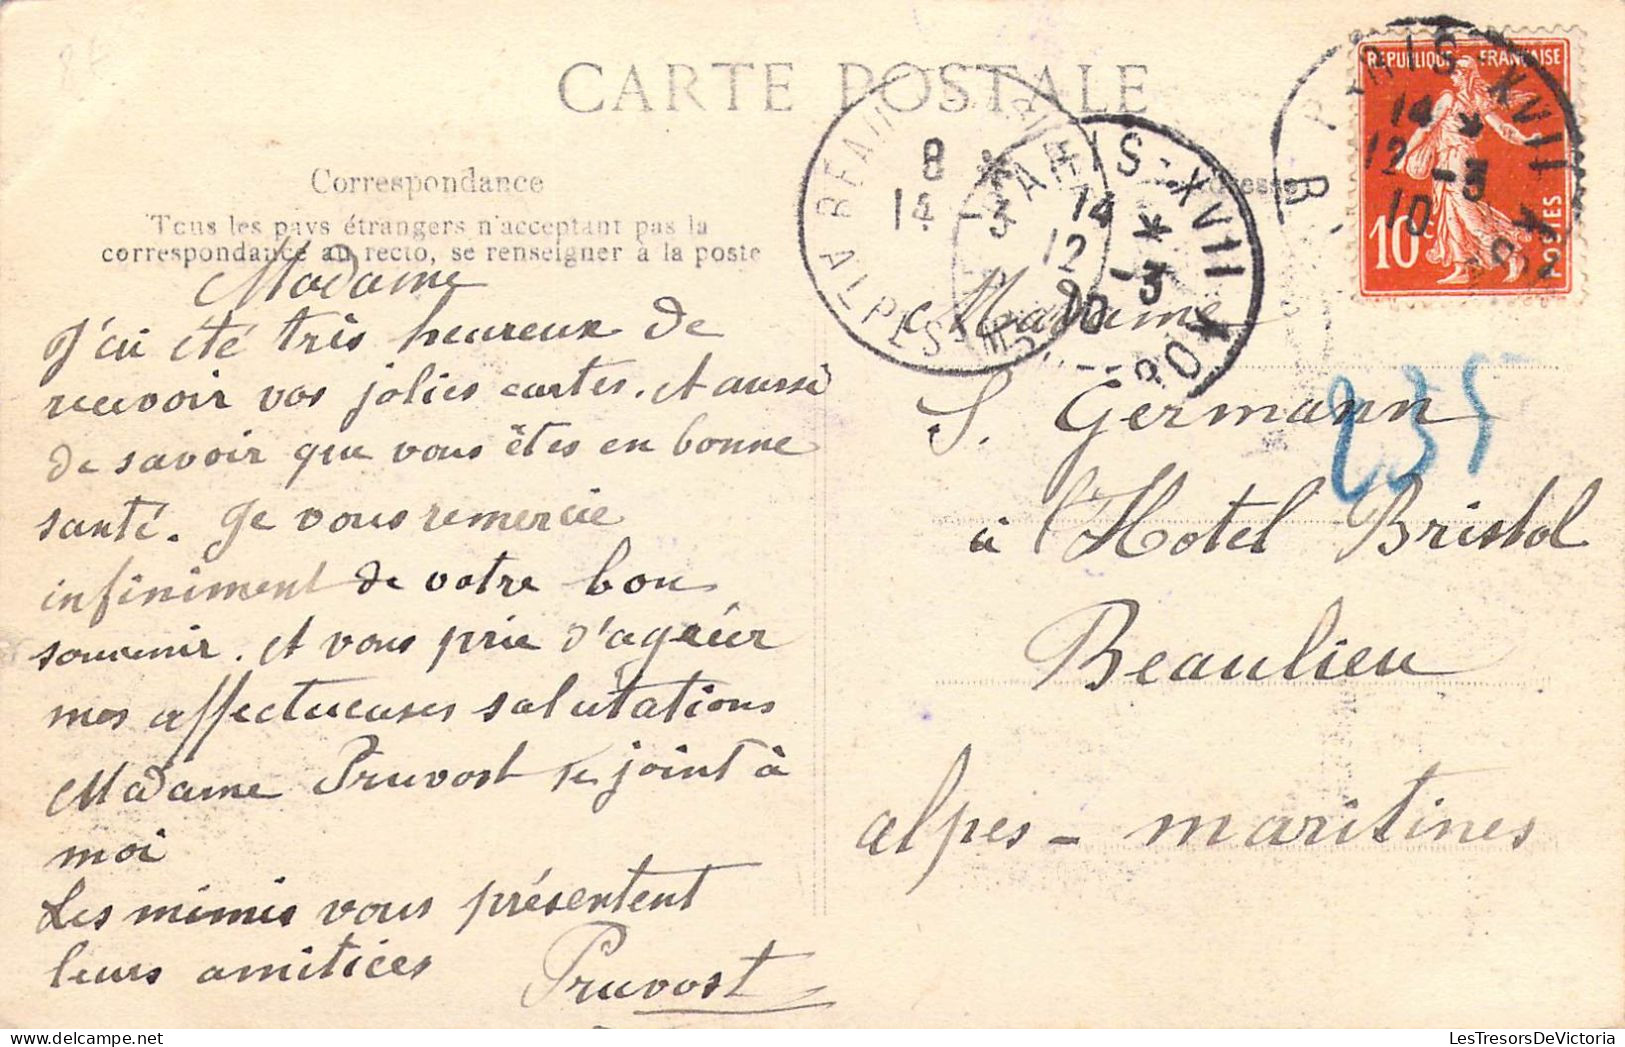 CARTE POSTALE
Correspondance
Tous les pays étrangers n'acceptent pas la
correspondance au recto, se renseigner à la poste
Madame
J'ai été très heureux de
recevoir vos jolies cartes. et aussi
de savoir que vous êtes en bonne
santé. Je vous remercie
infiniment de votre bon
souvenir. et vous prie d'agréer
mes affectueuses salutations
Madame Pruvost se joint à
moi
Les mimis vous présentent
leurs amitiées
Pruvost
BEAULIEU
8
14 -3
ALPES
PARIS-XVII
14
12 -3
10
PARIS XVII
14
12 -3
10
REPUBLIQUE FRANÇAISE
10c
POSTES
Adresse
Madame
S. Germann
235
à l'Hotel Bristol
Beaulieu
alpes-maritines
LesTresorsDeVictoria.com